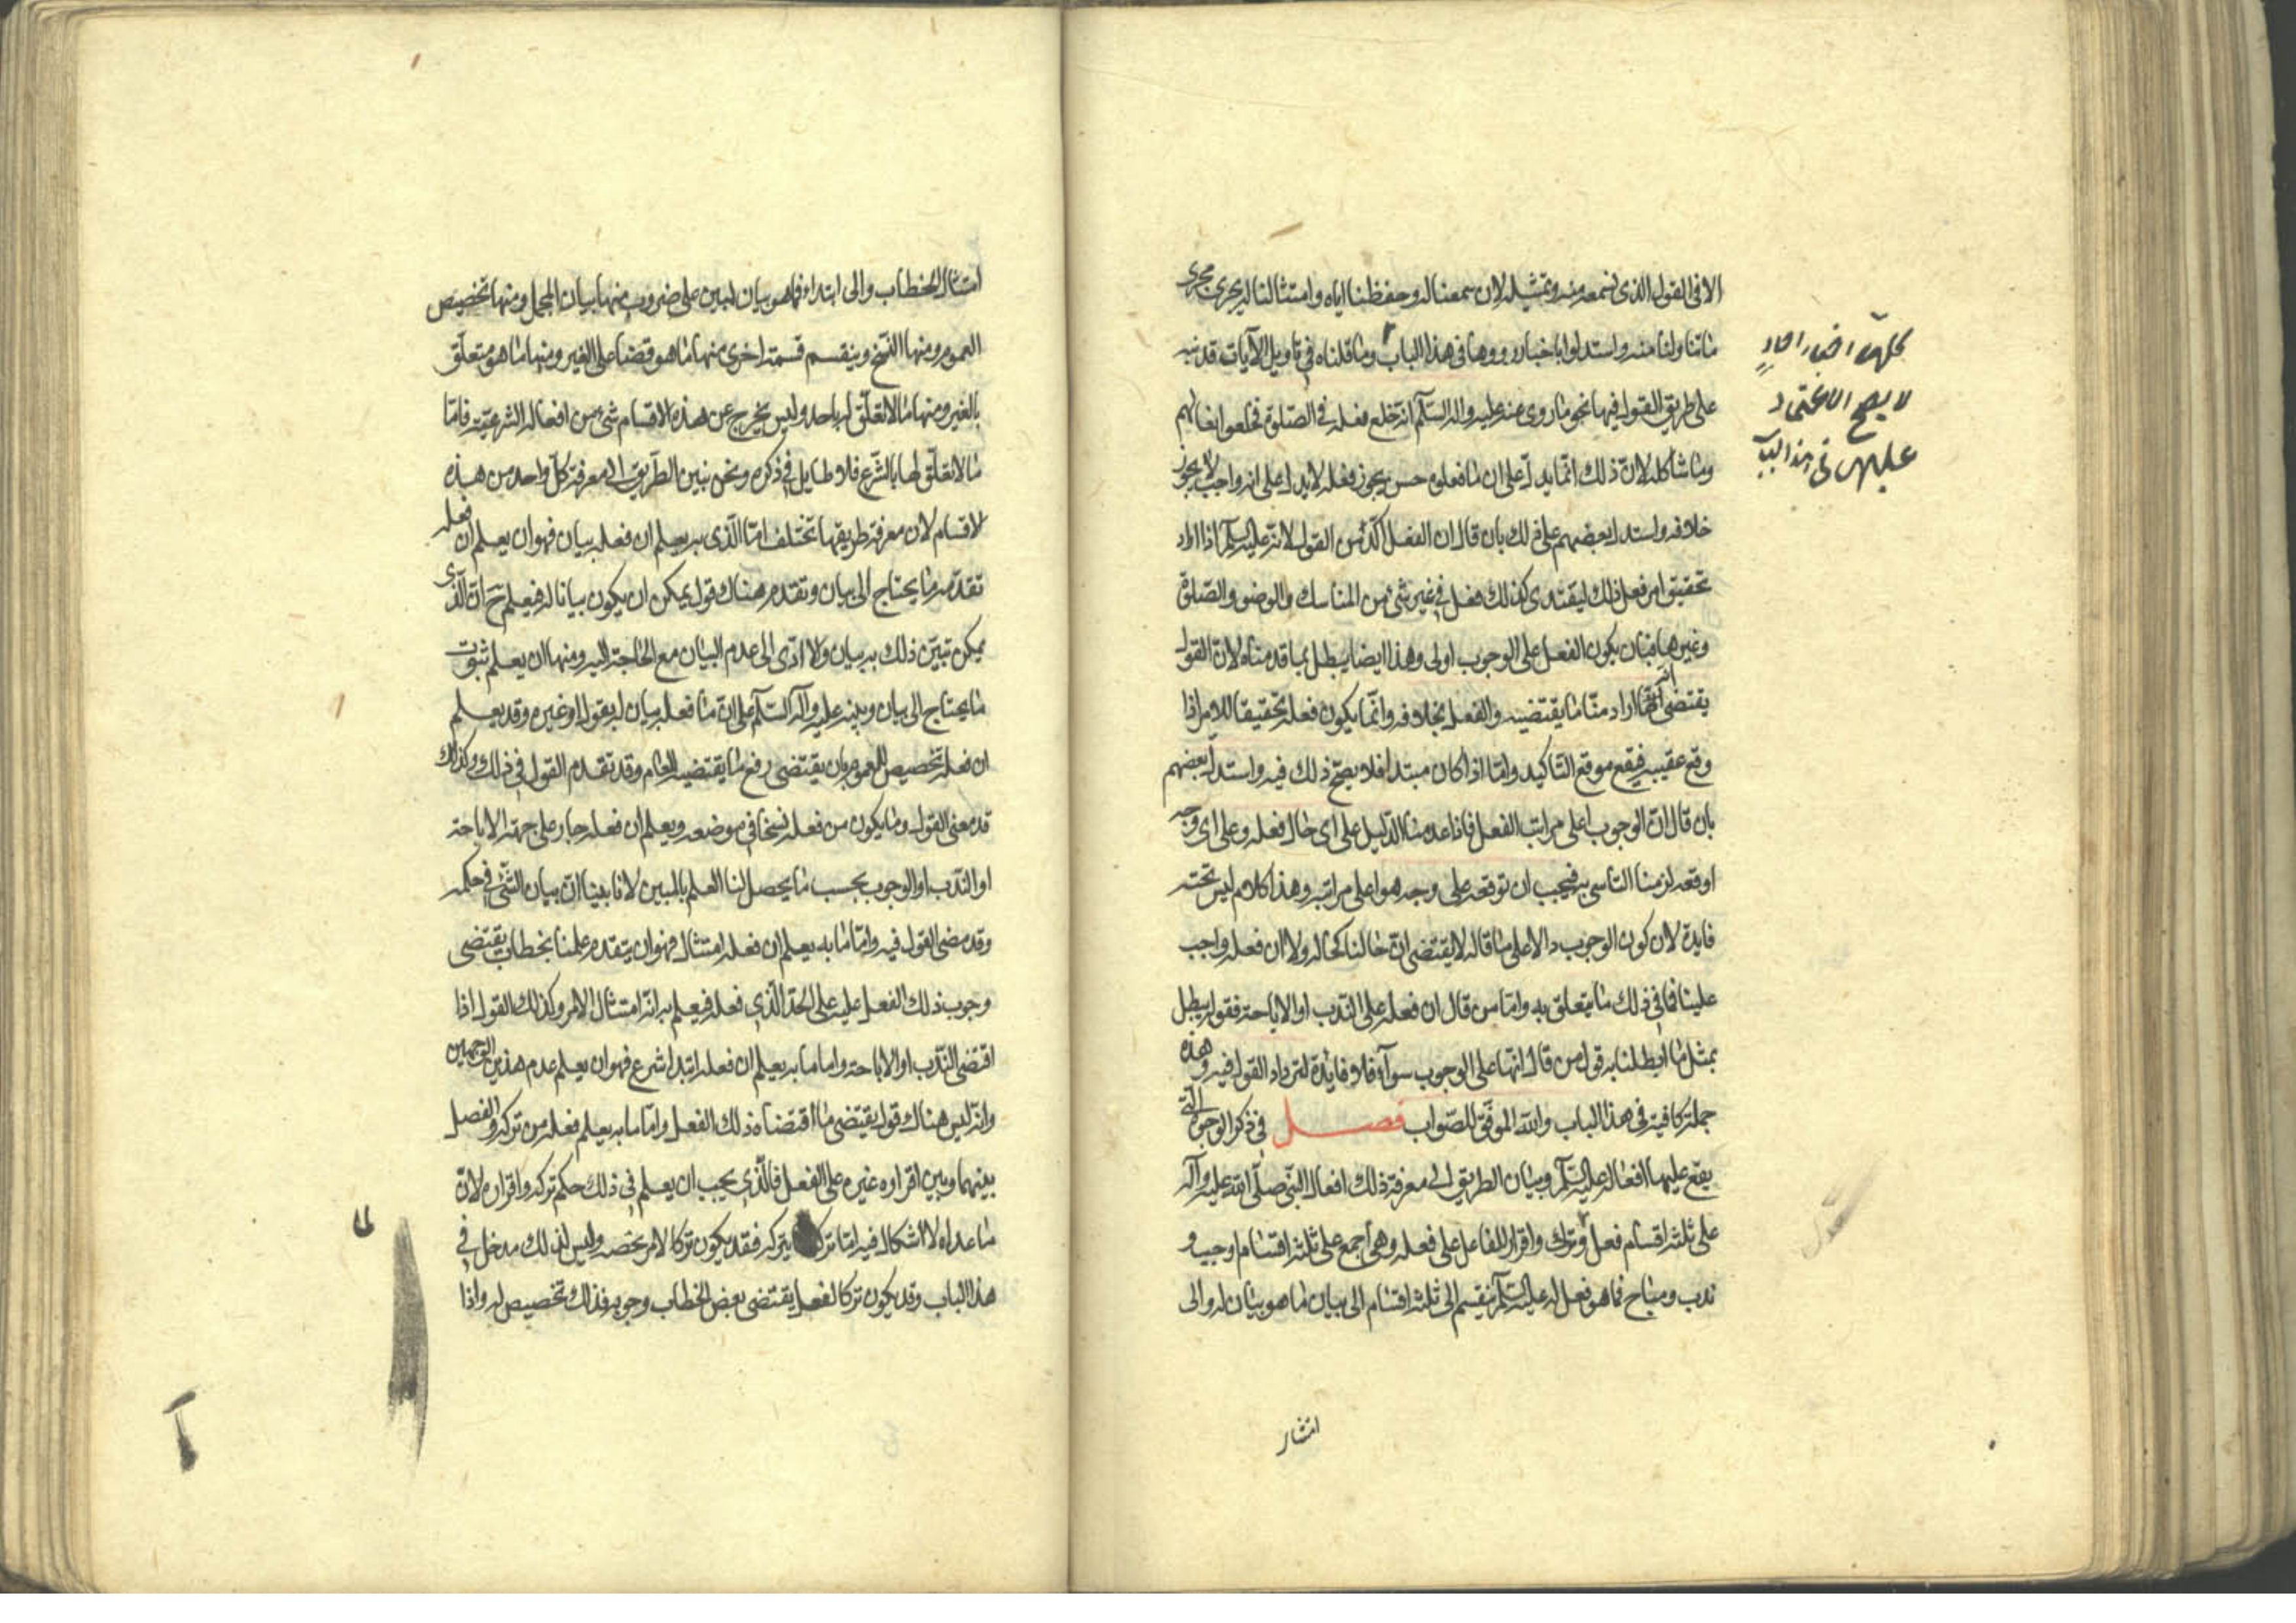 الا فى القول الذى نسمعه منه وتمثيله لان سمعنا له وحفظنا اياه وامتثالنا له يجرى مجرى
ما تناولنا منه واستدلوا باخبار رووها فى هذا الباب وما قلناه فى تاويل الآيات قد نبه
على طريق القول فيها نحو ما روى عنه عليه واله السلام انه خلع نعله فى الصلوة فخلعوا نعالهم
وما شاكله لان ذلك انما يدل على ان ما فعلوه حسن يجوز فعله لا يدل على انه واجب لا يجوز
خلافه واستدل بعضهم على ذلك بان قال ان الفعل آكد من القول لانه عليه السلم اذا اراد
تحقيق امر فعل ذلك ليقتدى كذلك فعل فى غير شئ من المناسك والوضو والصلوة
وغيرها فبان يكون الفعل على الوجوب اولى وهذا ايضا يبطل بما قدمناه لان القول
يقتضى انه اراد منا ما يقتضيه والفعل بخلافه وانما يكون فعله تحقيقا للامر اذا
وقع عقيبه فيقع موقع التاكيد واما اذا كان مبتدا فلا يصح ذلك فيه واستدل بعضهم
بان قال ان الوجوب اعلى مراتب الفعل فاذا عدمنا الدليل على اى حال فعله وعلى اى وجه
اوقعه لزمنا التاسى به فيجب ان نوقعه على وجه هو اعلى مراتبه وهذا كلام ليس تحته
فايدة لان كون الوجوب دالا على ما قاله لا يقتضى ان حالنا كحاله ولا ان فعله واجب
علينا فما فى ذلك ما يتعلق به واما من قال ان فعله على الندب او الاباحة فقوله يبطل
بمثل ما ابطلنا به قول من قال انها على الوجوب سواء فلا فائدة لترداد القول فيه وهذه
جملة كافية فى هذا الباب والله الموفق للصواب فصل فى ذكر الوجوه التى
يقع عليها افعاله عليه السلم وبيان الطريق الى معرفة ذلك افعال النبى صلى الله عليه وآله
على ثلثة اقسام فعل وترك واقرار للفاعل على فعله وهى اجمع على ثلثة اقسام اوجب و
ندب ومباح فما هو فعل له عليه السلم ينقسم الى ثلثة اقسام الى بيان ما هو بيان له والى
كلها اخبار احاد
لا يصح الاعتماد
عليها فى هذا الباب
امتثال
امتثال الخطاب والى ابتداء فما هو بيان لمبين على ضروب منها بيان المجمل ومنها تخصيص
العموم ومنها النسخ وينقسم قسمة اخرى منها ما هو قضا على الغير ومنها ما هو متعلق
بالغير ومنها ما لا تعلق له باحد وليس يخرج عن هذه الاقسام شئ من افعاله الشرعية فاما
ما لا تعلق لها بالشرع فلا طايل فى ذكره ونحن نبين الطريق الى معرفة كل واحد من هذه
لاقسام لان معرفة طريقها تختلف اما الذى به يعلم ان فعله بيان فهو ان يعلم ان فعله
تقدمه ما يحتاج الى بيان وتقدم هناك قول يمكن ان يكون بيانا له فيعلم ح ان الذى
يمكن تبين ذلك به بيان ولا ادى الى عدم البيان مع الحاجة اليه ومنها ان يعلم ثبوت
ما يحتاج الى بيان وينبه عليه وآله السلم على ان ما فعله بيان له بقول او غيره وقد يعلم
ان فعله تخصيص للعموم بان يقتضى رفع ما يقتضيه العام وقد تقدم القول فى ذلك وكذلك
قد معنى القول وما يكون من فعله نسخا فى موضعه ويعلم ان فعله جار على جهة الاباحة
او الندب او الوجوب بحسب ما يحصل لنا العلم بالمبين لانا بينا ان بيان الشئ فى حكمه
وقد مضى القول فيه واما ما به يعلم ان فعله امتثال فهو ان يتقدم علمنا بخطاب يقتضى
وجوب ذلك الفعل عليه على الحد الذى فعله فيعلم به انه امتثال الامر وكذلك القول اذا
اقتضى الندب او الاباحة واما ما به يعلم ان فعله ابتدا شرع فهو ان يعلم عدم هذين الوجهين
وانه ليس هناك قول يقتضى ما اقتضاه ذلك الفعل واما ما به يعلم فعله من تركه والفصل
بينهما وبين اقراره غيره على الفعل فالذى يجب ان يعلم فى ذلك حكم تركه واقراره لان
ما عداه لا اشكال فيه اما تركه يتركه فقد يكون تركا لامر يخصه وليس لذلك مدخل فى
هذا الباب وقد يكون تركا لفعل يقتضى بعض الخطاب وجوبه فذلك تخصيص له واذا